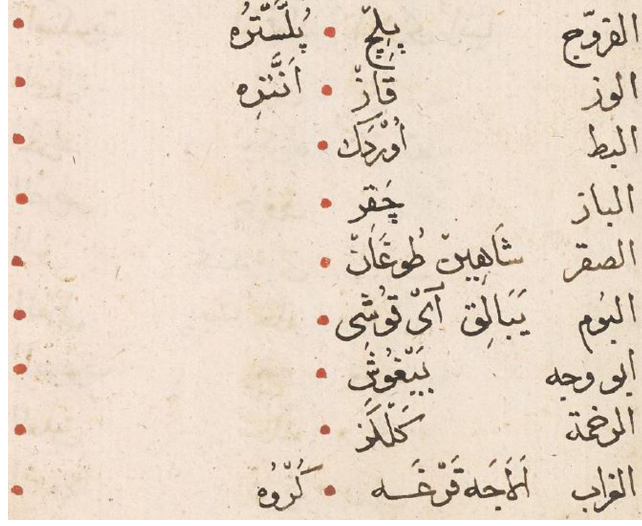 الفرّوج پِلِچْ پُلَّسْتَرُه
الوز قَازْ اَنَتْرَه
البط أُوْرْدَك
الباز چَقِر
الصقر شَاهِينْ طُوغَانْ
البُوم يَبَالِقْ آىْ قُوشِى
ابو وجه بَيْغُوشْ
الرخمة
الغراب اَلاَجَه قَرْغَه كُرْوُه